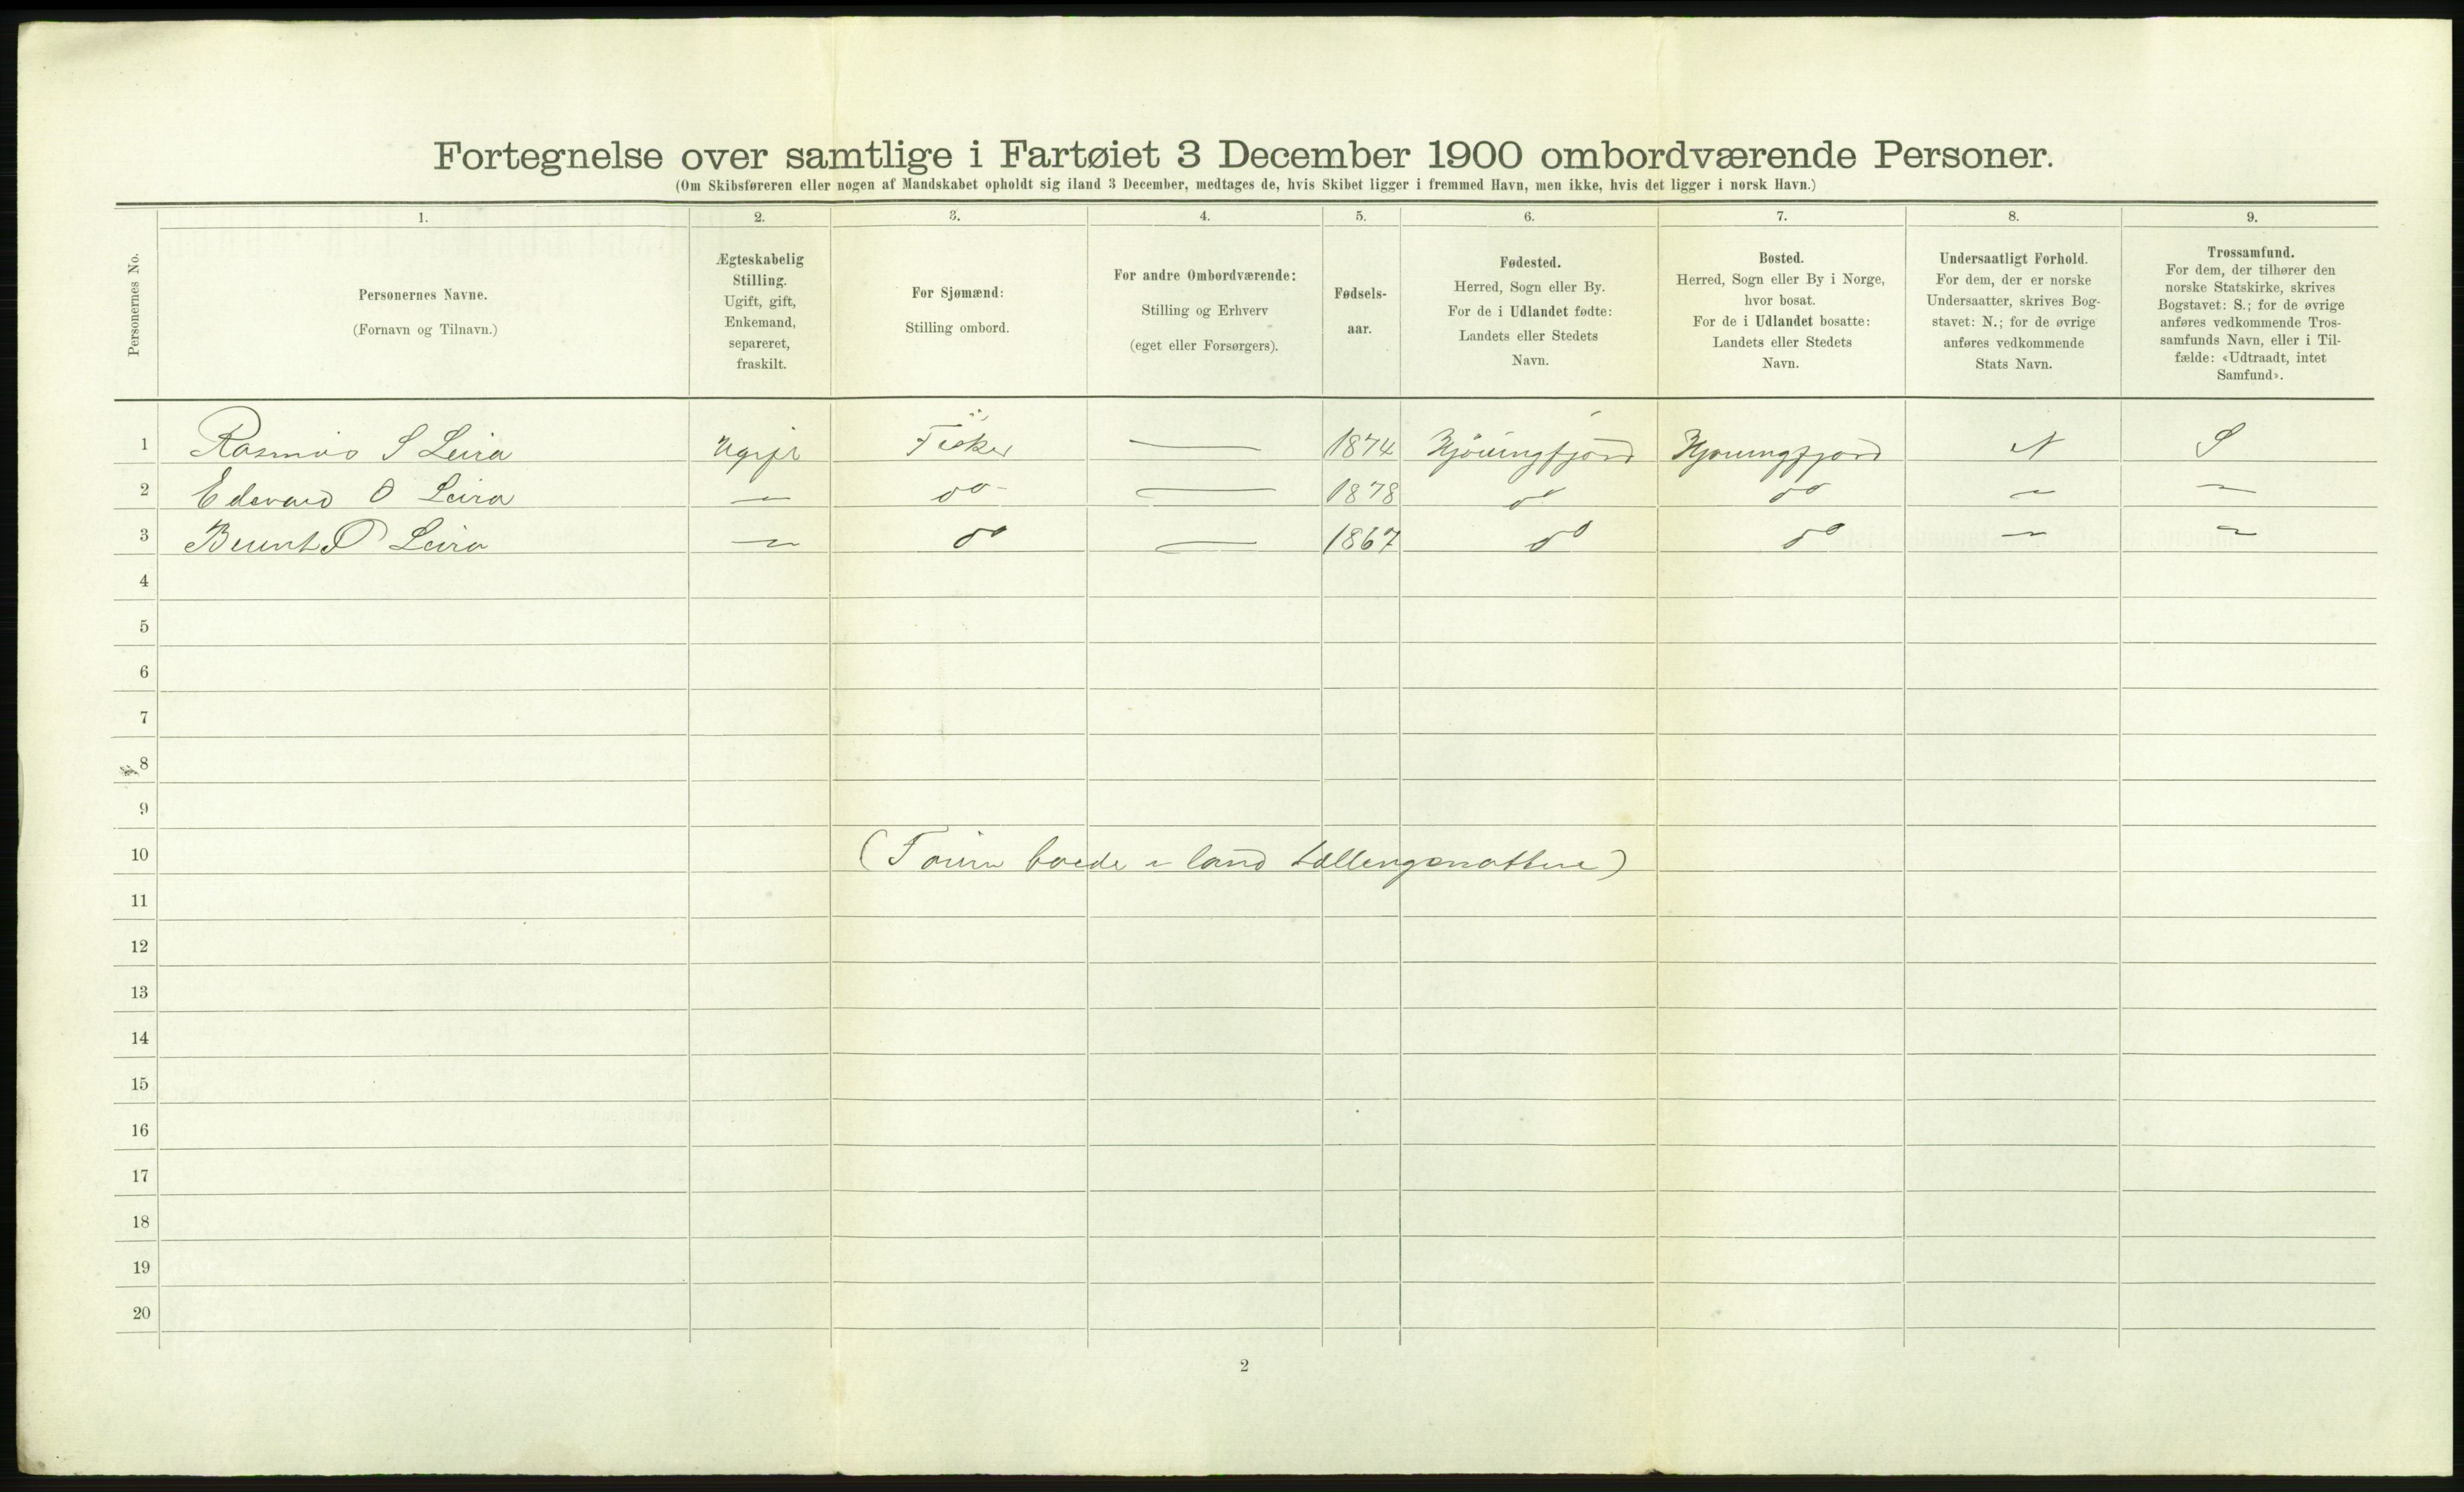 Fortegnelse over samtlige i Fartøiet 3 December 1900 ombordværende Personer.
(Om Skibsføreren eller nogen af Mandskabet opholdt sig iland 3 December, medtages de, hvis Skibet ligger i fremmed Havn, men ikke, hvis det ligger i norsk Havn.)
Personernes No.
1.
Personernes Navne.
(Fornavn og Tilnavn.)
2.
Ægteskabelig
Stilling.
Ugift, gift,
Enkemand,
separeret,
fraskilt.
3.
For Sjømænd:
Stilling ombord.
4.
For andre Ombordværende:
Stilling og Erhverv
(eget eller Forsørgers).
5.
Fødsels-
aar.
6.
Fødested.
Herred, Sogn eller By.
For de i Udlandet fødte:
Landets eller Stedets
Navn.
7.
Bosted.
Herred, Sogn eller By i Norge,
hvor bosat.
For de i Udlandet bosatte:
Landets eller Stedets
Navn.
8.
Undersaatligt Forhold.
For dem, der er norske
Undersaatter, skrives Bog-
stavet: N.; for de øvrige
anføres vedkommende
Stats Navn.
9.
Trossamfund.
For dem, der tilhører den
norske Statskirke, skrives
Bogstavet: S.; for de øvrige
anføres vedkommende Tros-
samfunds Navn, eller i Til-
fælde: «Udtraadt, intet
Samfund».
1 Rasmus S Leira Ugift Fisker — 1874 Hjöringfjord Hjöringfjord N S
2 Edevard O Leira — do - — 1878 do do — —
3 Bernt P Leira — do — 1867 do do — —
4
5
6
7
8
9
10 ( boede i land tællingsnatten)
11
12
13
14
15
16
17
18
19
20
2